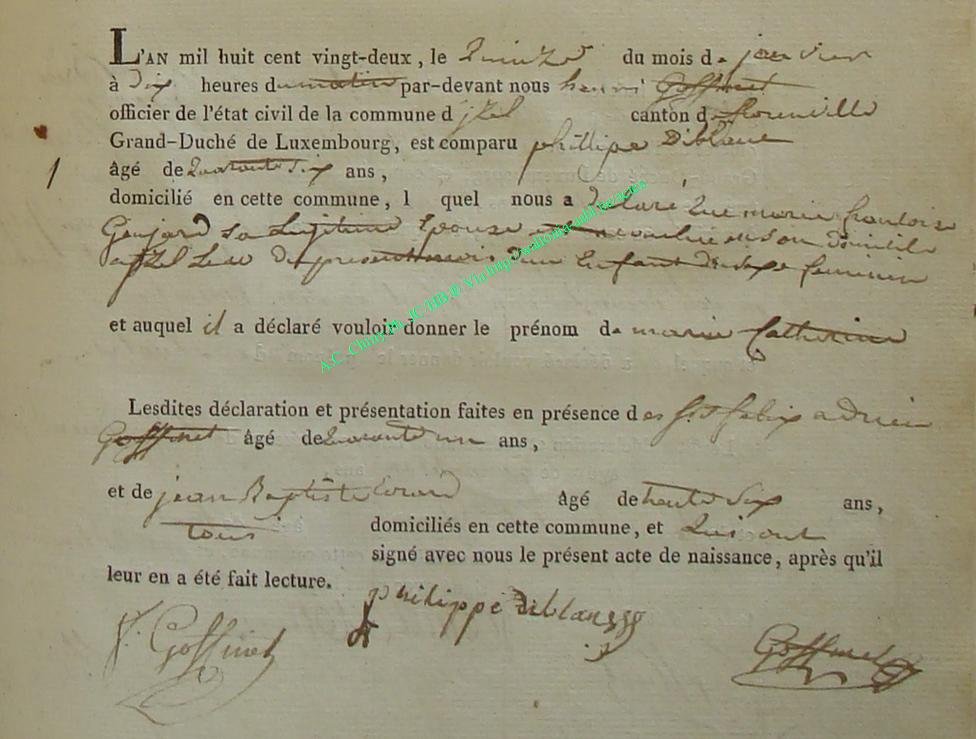 L'AN mil huit cent vingt-deux, le Quinze du mois de janvier
à Dix heures du matin par-devant nous henri Goffinet
officier de l'état civil de la commune d jzel canton de florenville
Grand-Duché de Luxembourg, est comparu phillipe Diblanc
1
âgé de Quarante Six ans,
domicilié en cette commune, l quel nous a Declaré Que marie francoise
Goujard Sa Legitime Epouse est accouchée en Son Domicile
a jzel Le Du present mois d'un Enfant De Sexe feminin
et auquel il a déclaré vouloir donner le prénom de marie Catherine
A.C. Chiny
Lesdites déclaration et présentation faites en présence des felix adrien
Goffinet âgé de Quarante un ans,
et de jean Baptiste âgé de trente Six ans,
tous domiciliés en cette commune, et Qui ont
signé avec nous le présent acte de naissance, après qu'il
leur en a été fait lecture.
philippe diblan
f. Goffinet
Goffinet